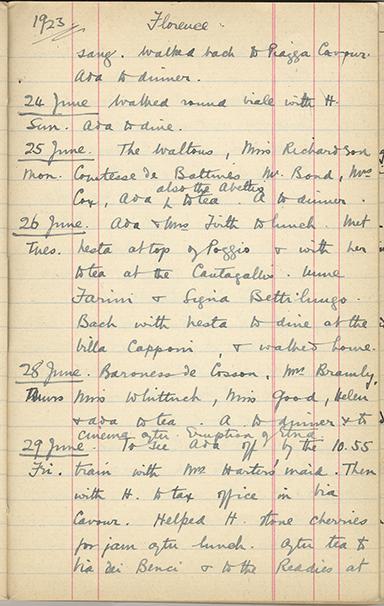 1923 Florence.
sang. Walked back to Piazza Cavour.
Ada to dinner.
24 June Walked round viale with H.
Sun. Ada to dine.
25 June. The Waltons, Miss Richardson
Mon. Comtesse de Mr. Bond, Mrs
also the Abettis
Cox, Ada to tea. A to dinner.
26 June. Ada & Mrs Firth to lunch. Met
Tues. Nesta at top of Poggio & with her
to tea at the Cantagallos.
Farini & Signa
Back with Nesta to dine at the
Villa Capponi, & walked home.
28 June. Baroness de Cosson, Mrs Bramly,
Thurs Miss Miss Good, Helen
& Ada to tea. A. to dinner & to
cinema after. Eruption of Etna
29 June. To see Ada off by the 10.55
Fri. train with Mrs Harters' maid. Then
with H. to tax office in Via
Cavour. Helped H. stone cherries
for jam after lunch. After tea to
Via dei Benci & to the Readies at